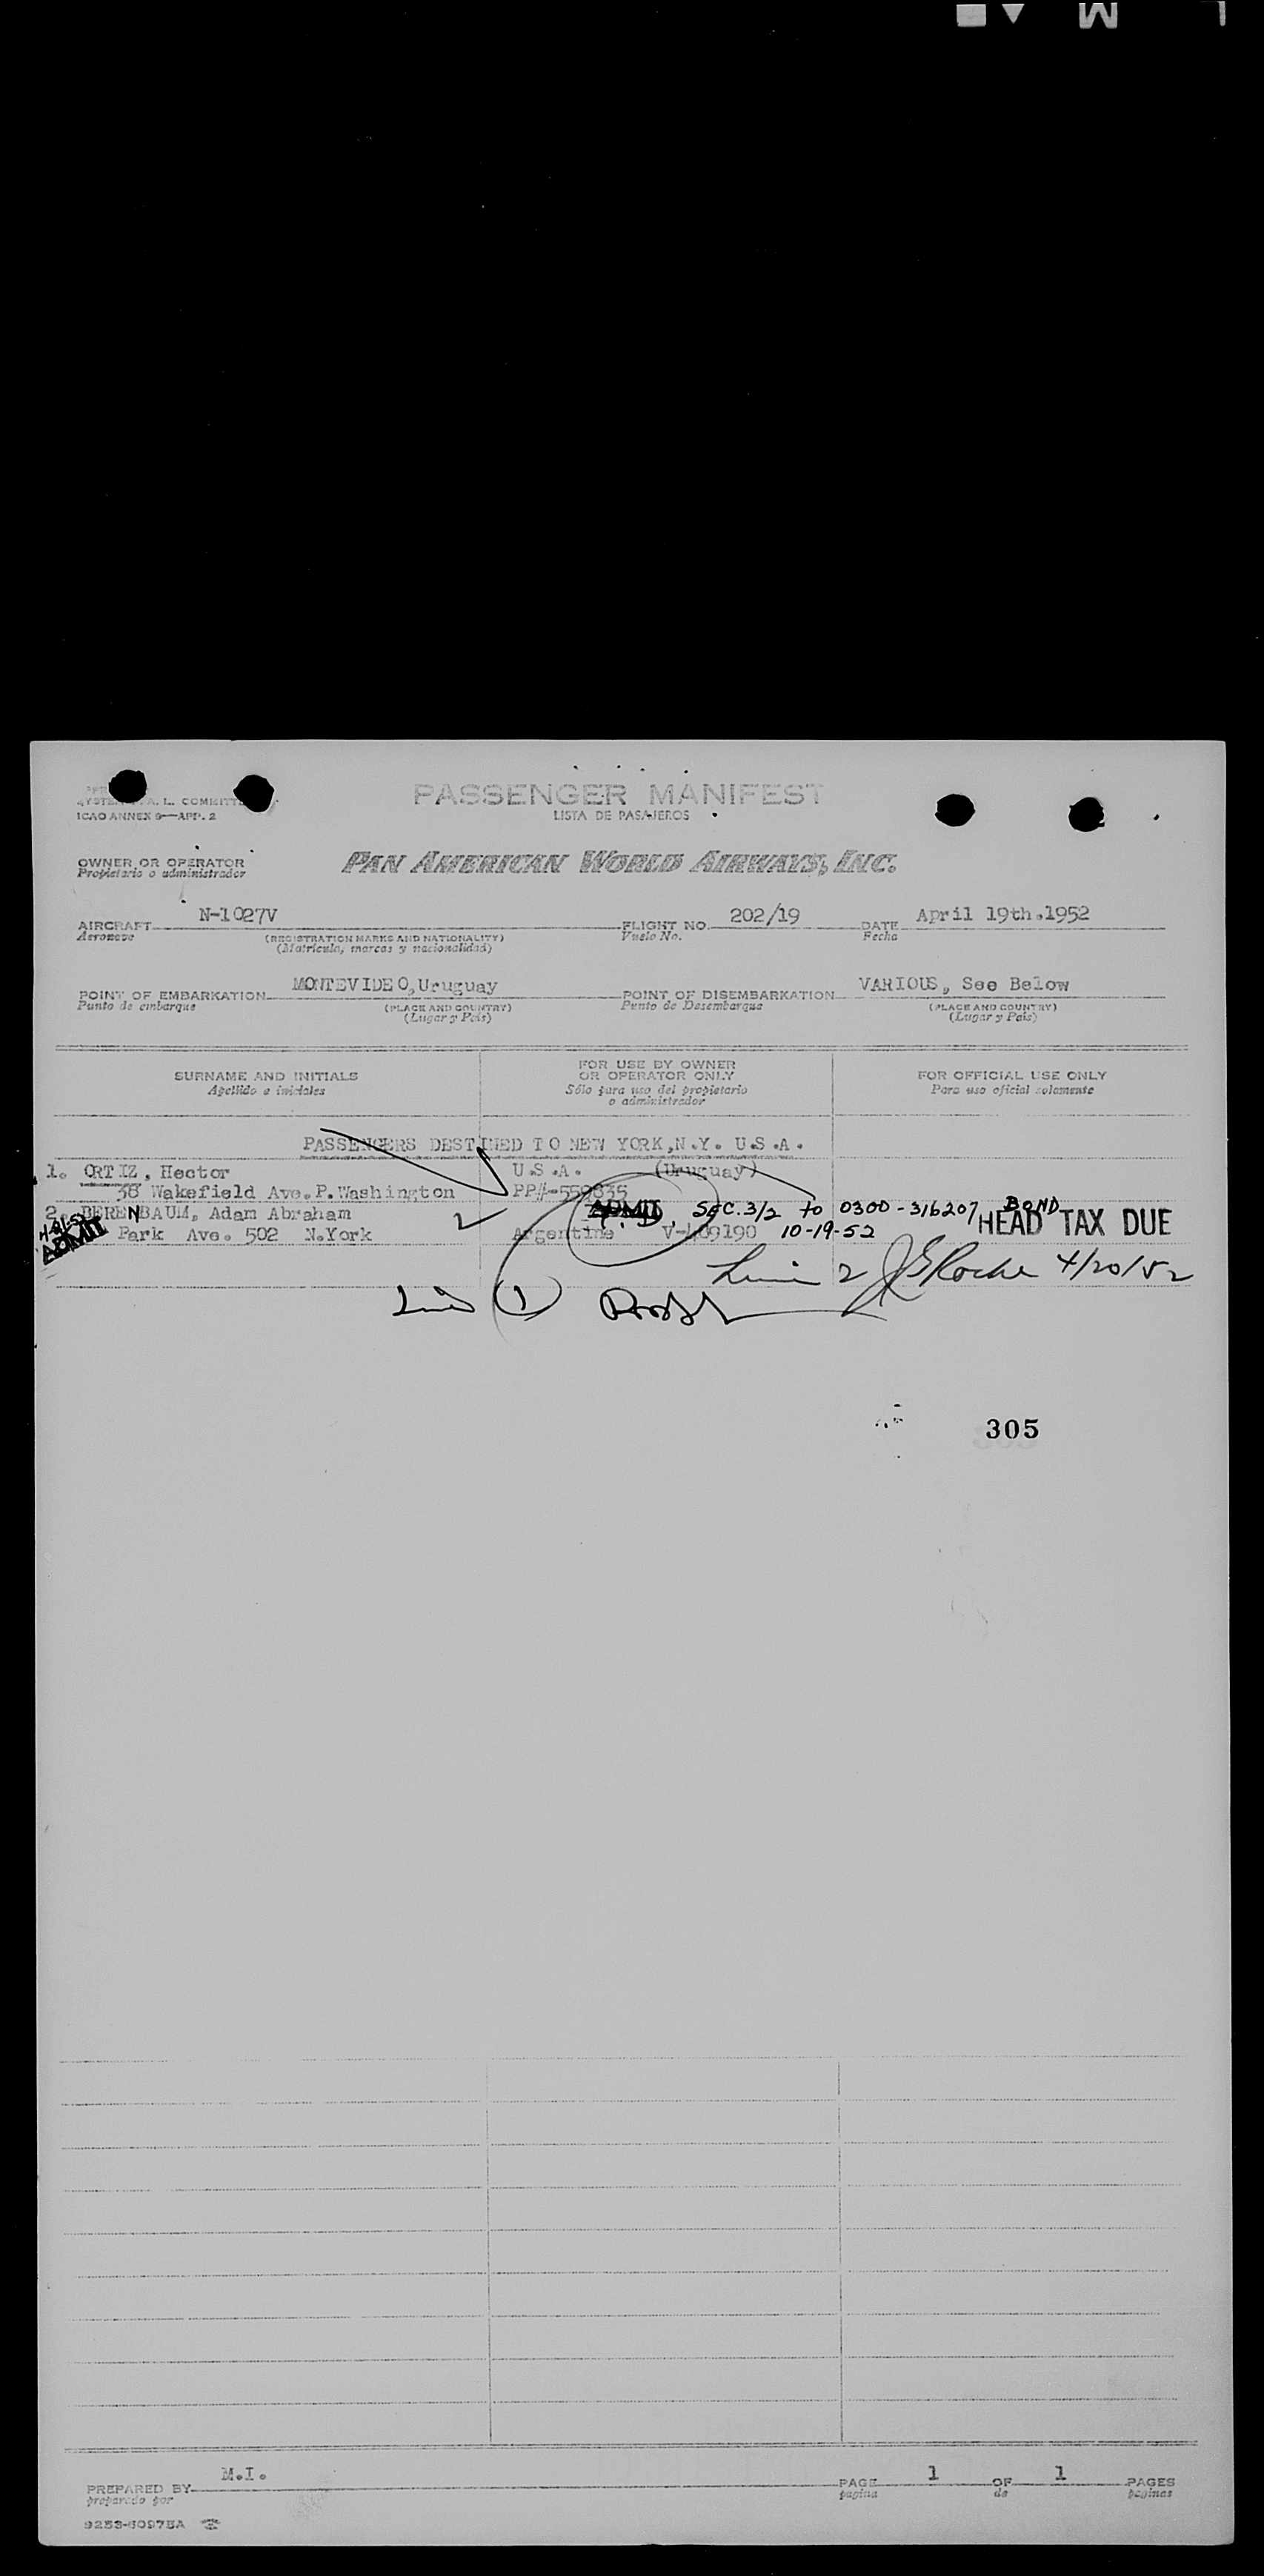 PASSENGER MANIFEST
LISTA DE PASAJEROS
ICAO ANNEX 9—APP. 2
PAN AMERICAN WORLD AIRWAYS, INC.
OWNER OR OPERATOR
Propietario o administrador
AIRCRAFT N-1027V FLIGHT NO. 202/19 DATE April 19th.1952
Aeronave (REGISTRATION MARKS AND NATIONALITY) Vuelo No. Fecha
(Matricula, marcas y nacionalidad)
POINT OF EMBARKATION MONTEVIDEO, Uruguay POINT OF DISEMBARKATION VARIOUS, See Below
Punto de embarque (PLACE AND COUNTRY) Punto de Desembarque (PLACE AND COUNTRY)
(Lugar y País) (Lugar y País)
SURNAME AND INITIALS FOR USE BY OWNER OR OPERATOR ONLY FOR OFFICIAL USE ONLY
Apellido e iniciales Sólo para uso del propietario o administrador Para uso oficial solamente
PASSENGERS DESTINED TO NEW YORK,N.Y. U.S.A.
1. ORTIZ, Hector U.S.A. (Uruguay)
38 Wakefield Ave.P.Washington PP#-559835
2. BERENBAUM, Adam Abraham N ADMIT SEC. 3/2 to 0300-316207 BOND
ADMIT Park Ave. 502 N.York 2 Argentine V-409190 10-19-52 HEAD TAX DUE
Line 2 JERoche 4/20/52
Line 1
305
PREPARED BY M.I. PAGE 1 OF 1 PAGES
preparado por pagina de paginas